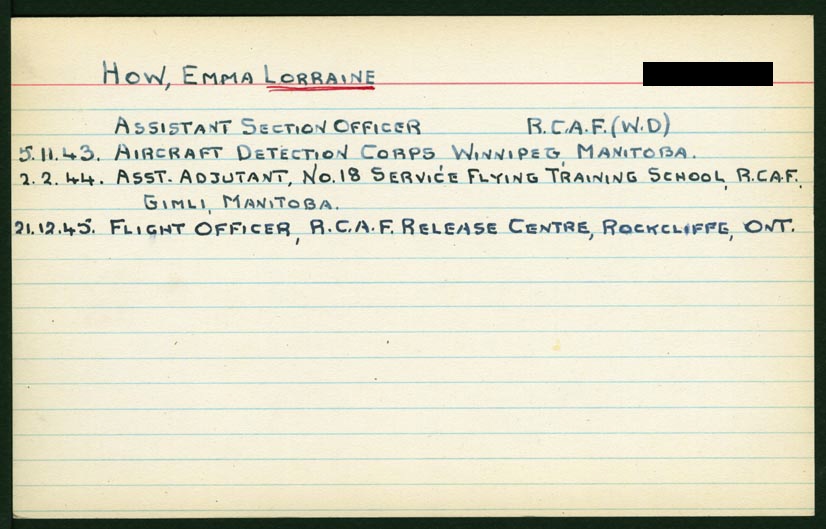 HOW, EMMA LORRAINE
ASSISTANT SECTION OFFICER R.C.A.F. (W.D)
5.11.43. AIRCRAFT DETECTION CORPS WINNIPEG, MANITOBA.
2.2.44. ASST. ADJUTANT, NO. 18 SERVICE FLYING TRAINING SCHOOL, R.C.A.F.
GIMLI, MANITOBA.
21.12.45. FLIGHT OFFICER, R.C.A.F. RELEASE CENTRE, ROCKCLIFFE, ONT.